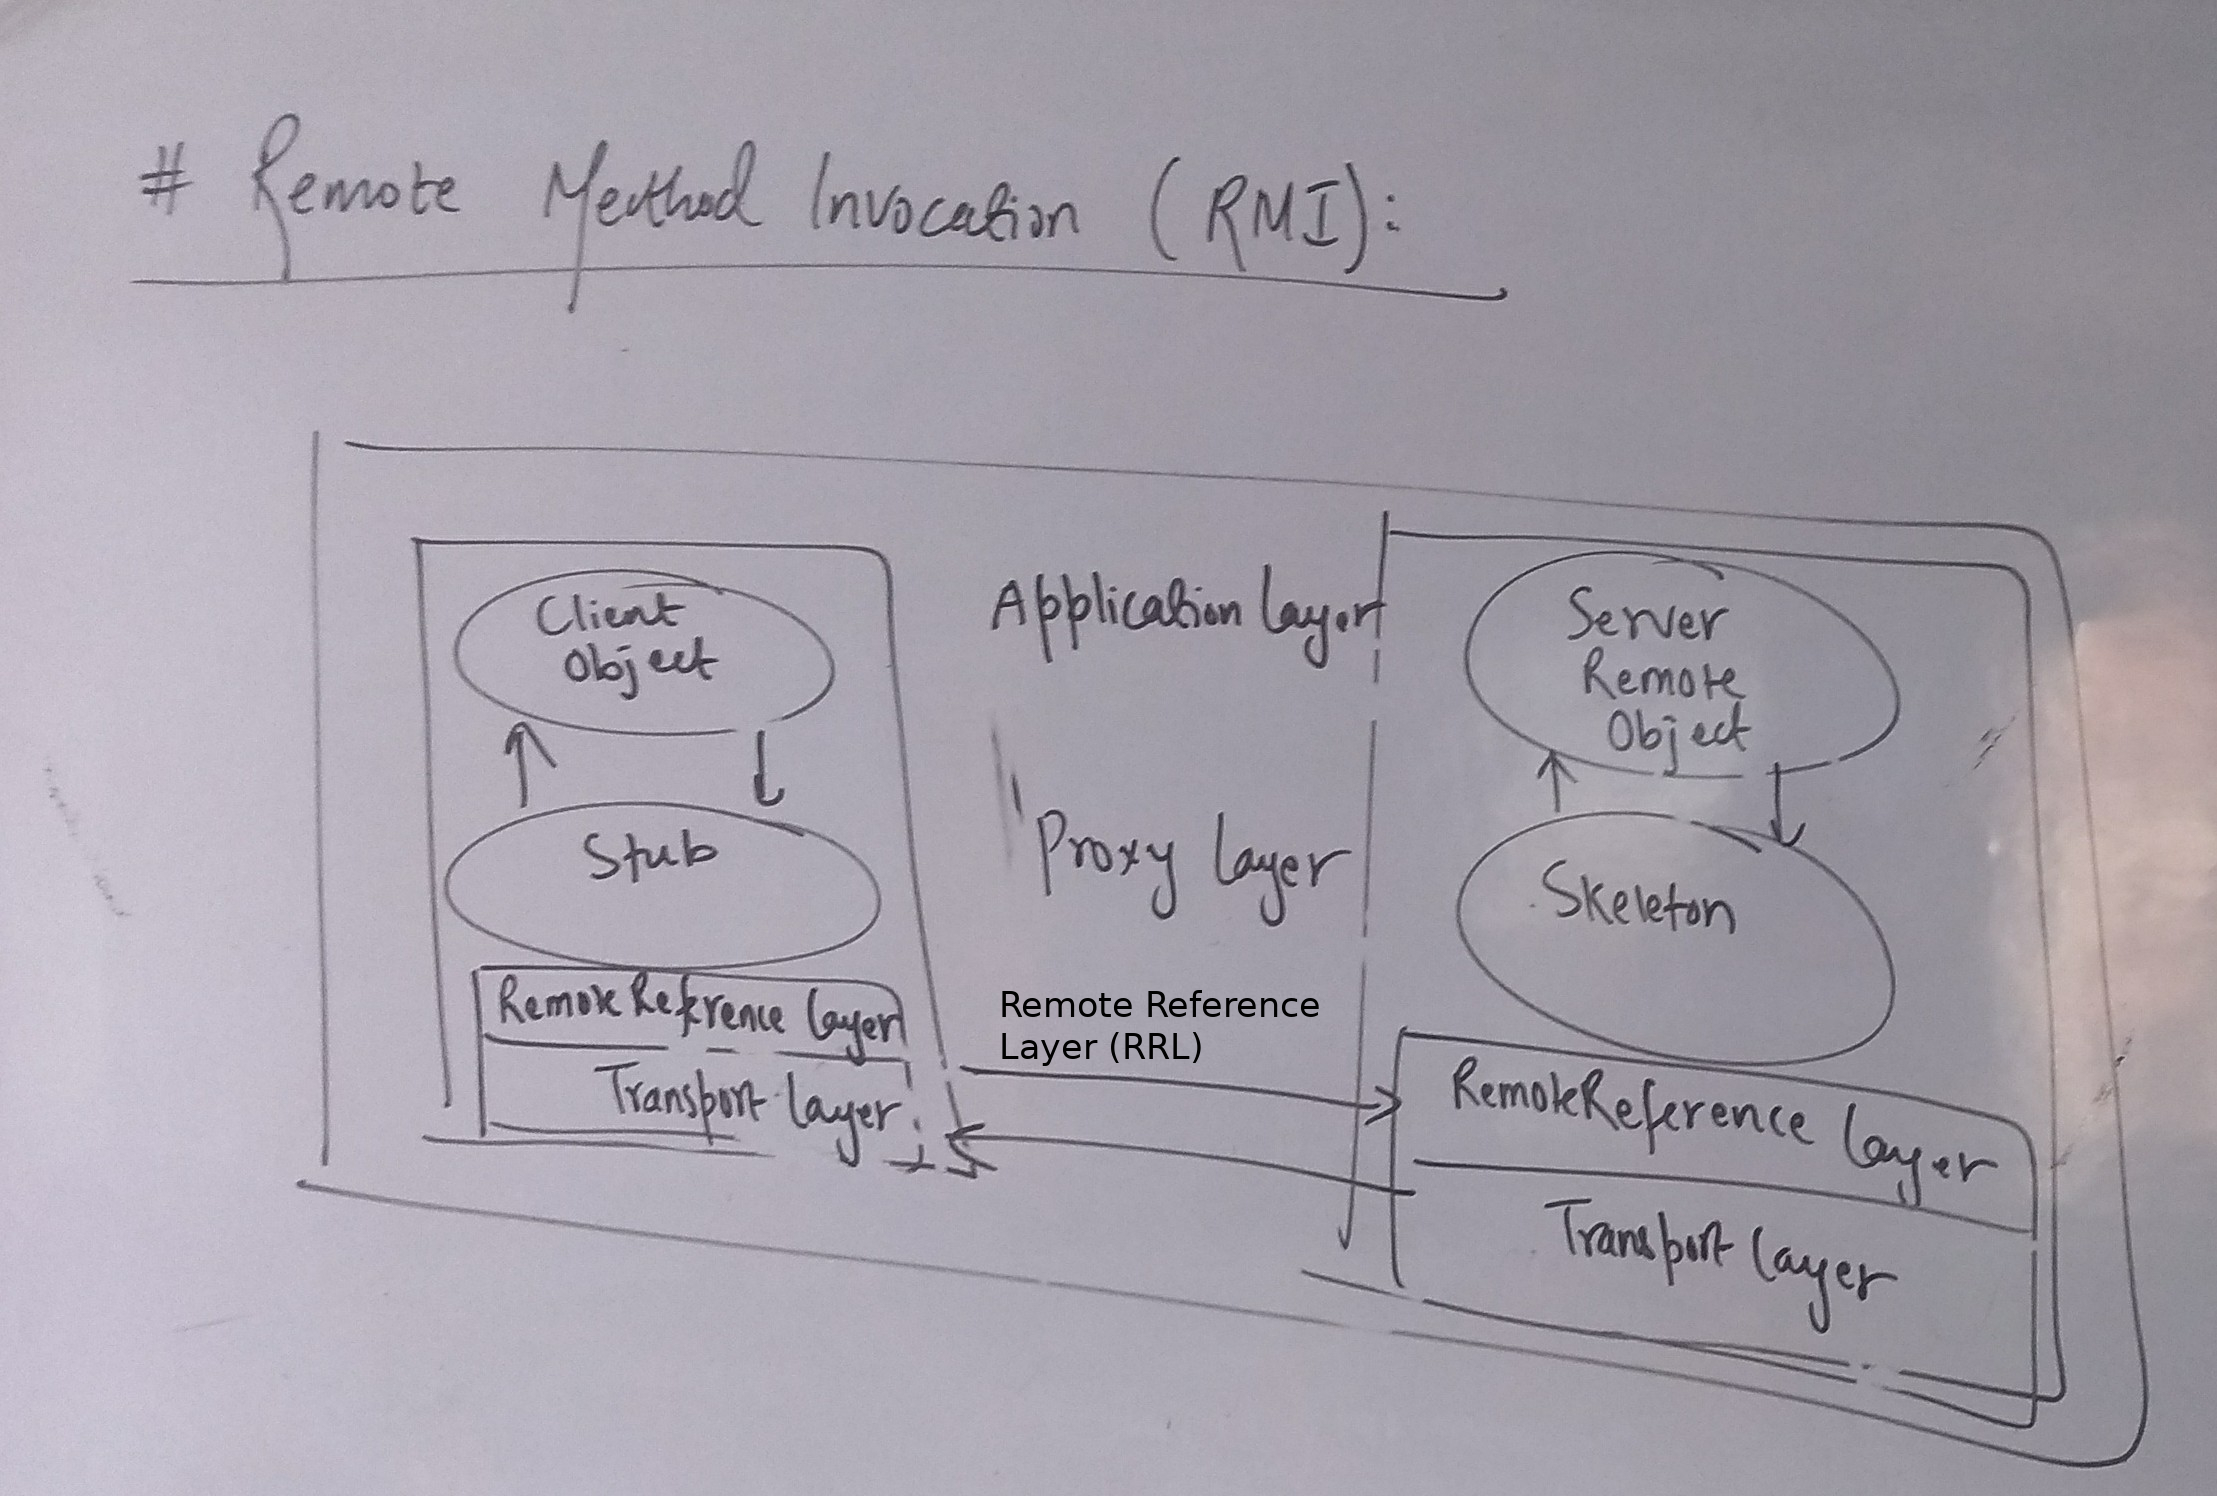 # Remote Method Invocation (RMI):
Client
Object
Stub
Remote Reference layer
Transport layer
Application layer
Proxy layer
Remote Reference
Layer (RRL)
Server
Remote
Object
Skeleton
Remote Reference layer
Transport layer